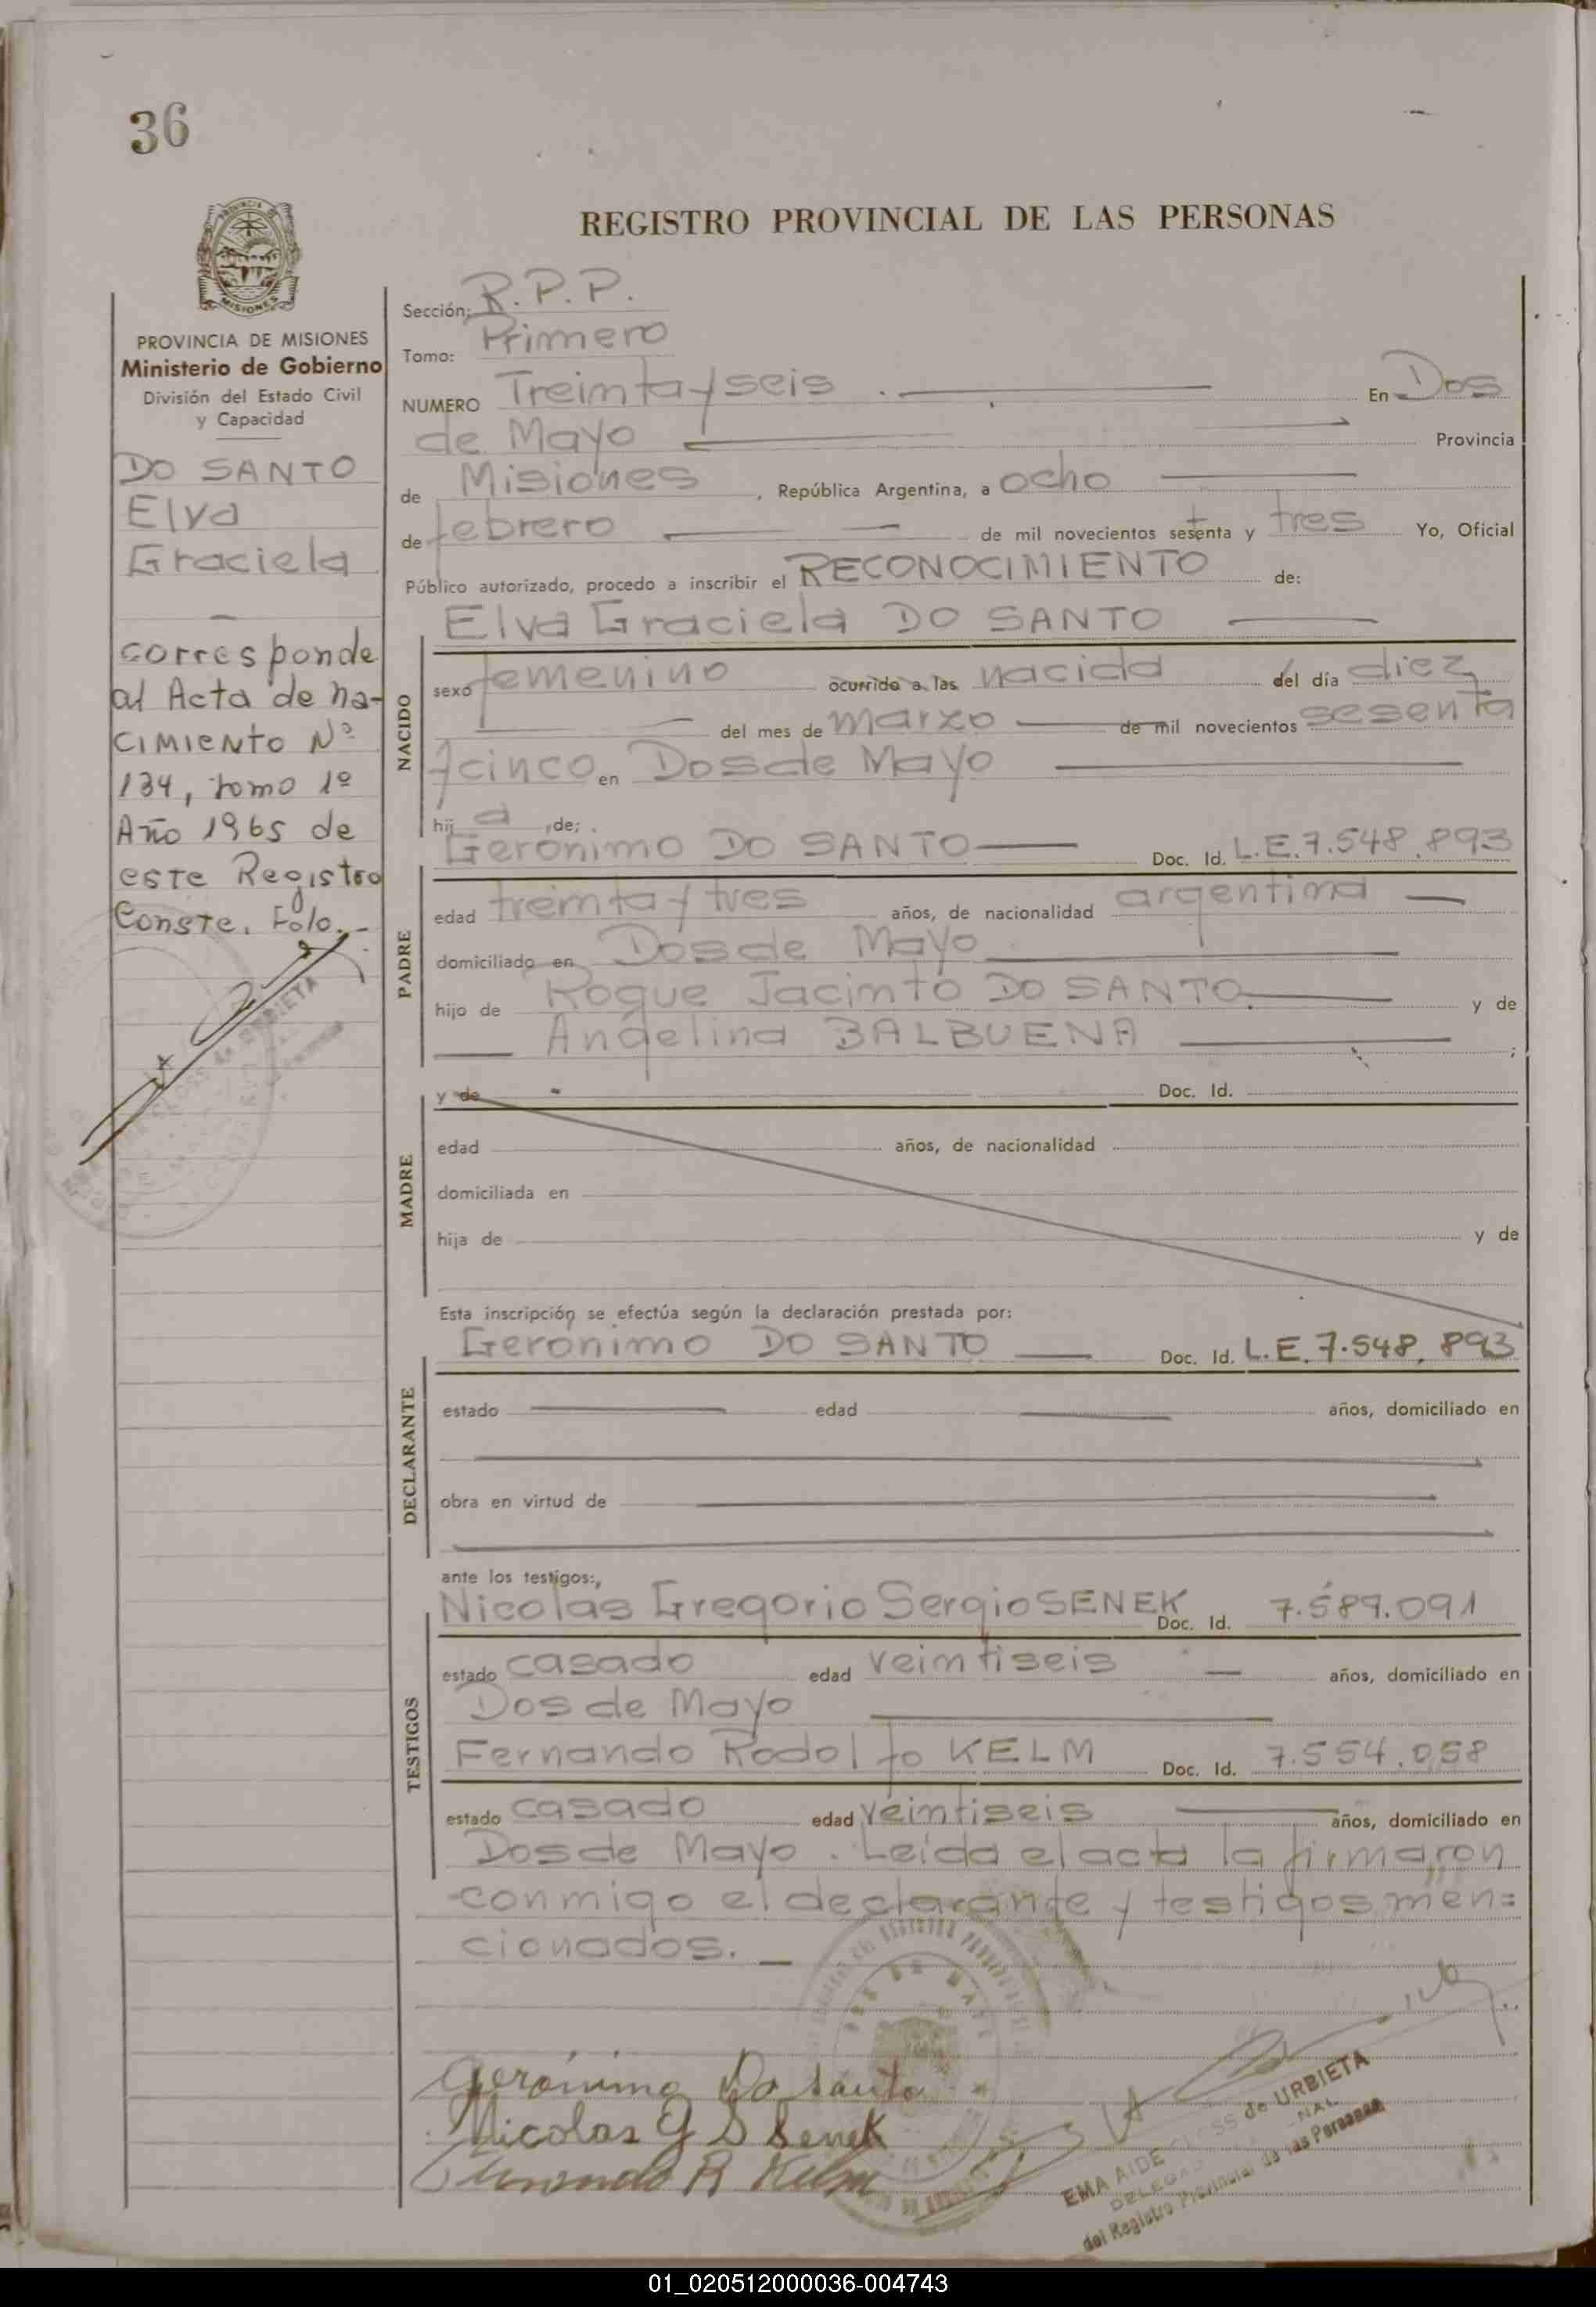 36
REGISTRO PROVINCIAL DE LAS PERSONAS
PROVINCIA DE MISIONES
Ministerio de Gobierno
División del Estado Civil
y Capacidad
DO SANTO
Elva
Graciela
corresponde
al Acta de na-
cimiento Nº
134, tomo 1º
Año 1965 de
este Registro
Conste. Folo.-
Sección: R.P.P.
Tomo: Primero
NUMERO Treinta y seis . En Dos
de Mayo Provincia
de Misiones , República Argentina, a ocho
de febrero de mil novecientos setenta y tres Yo, Oficial
Público autorizado, procedo a inscribir el RECONOCIMIENTO de:
Elva Graciela DO SANTO
NACIDO
sexo femenino ocurrido a las nacida del día diez
del mes de marzo de mil novecientos sesenta
y cinco en Dos de Mayo
hij a ,de:
Gerónimo DO SANTO Doc. Id. L.E. 7.548.893
PADRE
edad treinta y tres años, de nacionalidad argentina
domiciliado en Dos de Mayo
hijo de Roque Jacinto DO SANTO y de
Angelina BALBUENA ;
MADRE
y de Doc. Id.
edad años, de nacionalidad
domiciliada en
hija de y de
Esta inscripción se efectúa según la declaración prestada por:
Gerónimo DO SANTO Doc. Id. L.E. 7.548.893
DECLARANTE
estado edad años, domiciliado en
obra en virtud de
ante los testigos:,
Nicolas Gregorio Sergio SENEK Doc. Id. 7.589.091
TESTIGOS
estado casado edad veintiseis años, domiciliado en
Dos de Mayo
Fernando Rodolfo KELM Doc. Id. 7.554.058
estado casado edad veintiseis años, domiciliado en
Dos de Mayo. Leída el acta la firmaron
conmigo el declarante y testigos men=
cionados.
Gerónimo Do Santo
Nicolas G S Senek
Fernando R Kelm
EMA AIDE de URBIETA
del Registro Provincial de las Personas
01_020512000036-004743